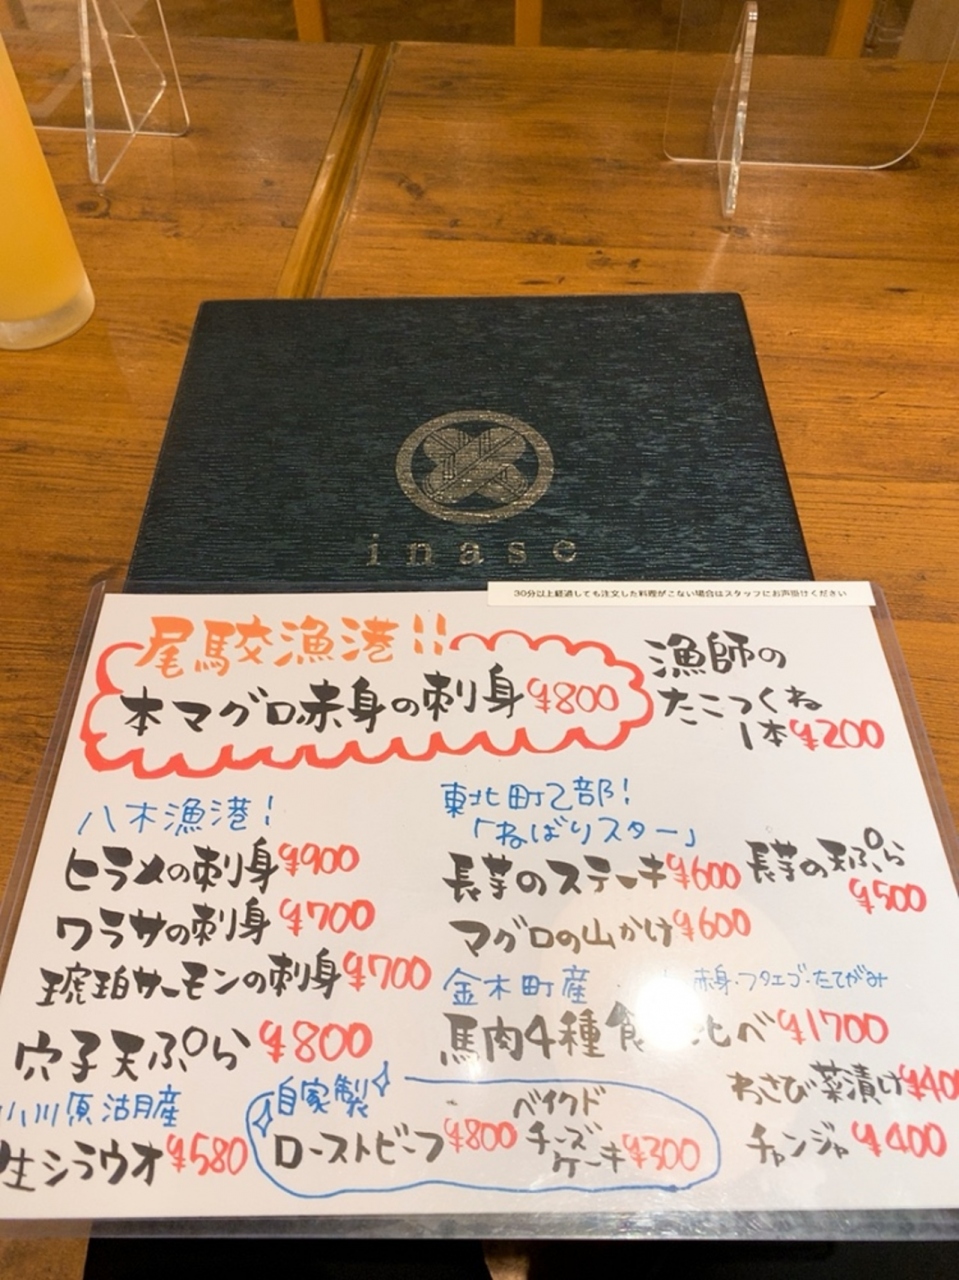 inase
30分以上経過しても注文した料理がこない場合はスタッフにお声掛けください
尾駮漁港!!
本マグロ赤身の刺身 ¥800
漁師の
たこつくね
1本 ¥200
八木漁港!
ヒラメの刺身 ¥900
ワラサの刺身 ¥700
琥珀サーモンの刺身 ¥700
穴子天ぷら ¥800
小川原湖産
生シラウオ ¥580
東北町乙部!
「ねばりスター」
長芋のステーキ ¥600
長芋の天ぷら
¥500
マグロの山かけ ¥600
金木町産
赤身・フタエゴ・たてがみ
馬肉4種食 比べ ¥1700
自家製
ローストビーフ ¥800
ベイクド
チーズ
ケーキ ¥300
わさび菜漬け ¥40
チャンジャ ¥400